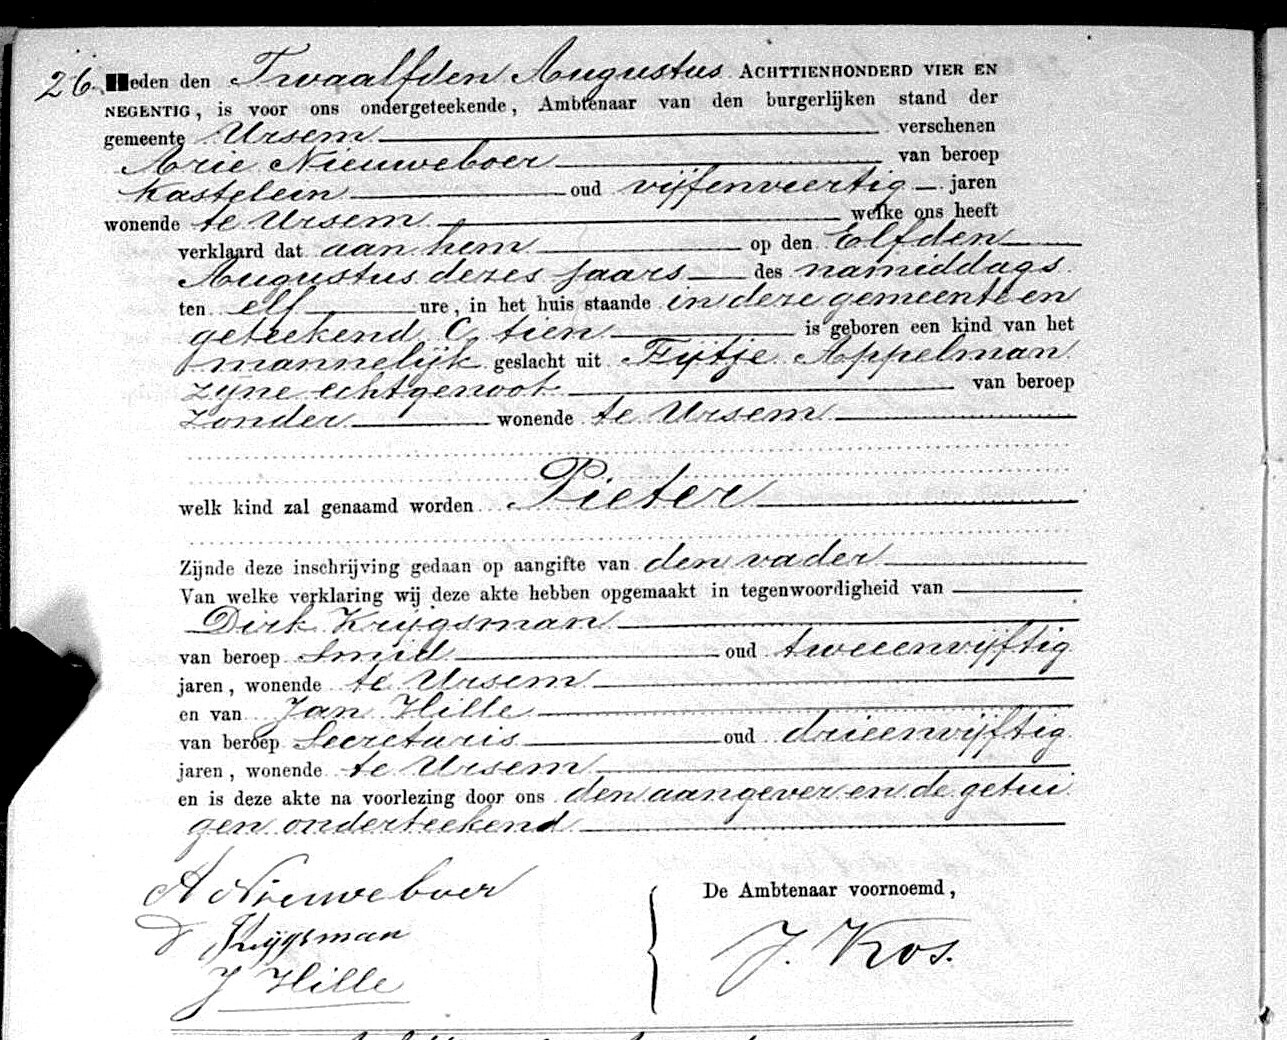 26. Heden den Twaalfden Augustus ACHTTIENHONDERD VIER EN
NEGENTIG, is voor ons ondergeteekende, Ambtenaar van den burgerlijken stand der
gemeente Ursem verschenen
Arie Nieuweboer van beroep
Kastelein oud vijfenveertig jaren
wonende te Ursem welke ons heeft
verklaard dat aan hem op den Elfden
Augustus dezes jaars des namiddags
ten elf ure, in het huis staande in deze gemeente en
geteekend C tien is geboren een kind van het
mannelijk geslacht uit Fijtje Appelman
zijne echtgenoot van beroep
zonder wonende te Ursem
welk kind zal genaamd worden Pieter
Zijnde deze inschrijving gedaan op aangifte van den vader
Van welke verklaring wij deze akte hebben opgemaakt in tegenwoordigheid van
Dirk Krijgsman
van beroep Smid oud tweeenvijftig
jaren, wonende te Ursem
en van Jan Hille
van beroep Secretaris oud drieenvijftig
jaren, wonende te Ursem
en is deze akte na voorlezing door ons den aangever en de getui
gen onderteekend
A Nieuweboer
De Ambtenaar voornoemd,
D Krijgsman
J. Kos.
J Hille